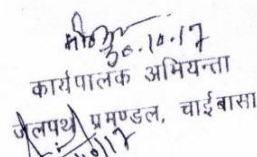 30.10.17
कार्यपालक अभियन्ता
जलपथ प्रमण्डल, चाईबासा